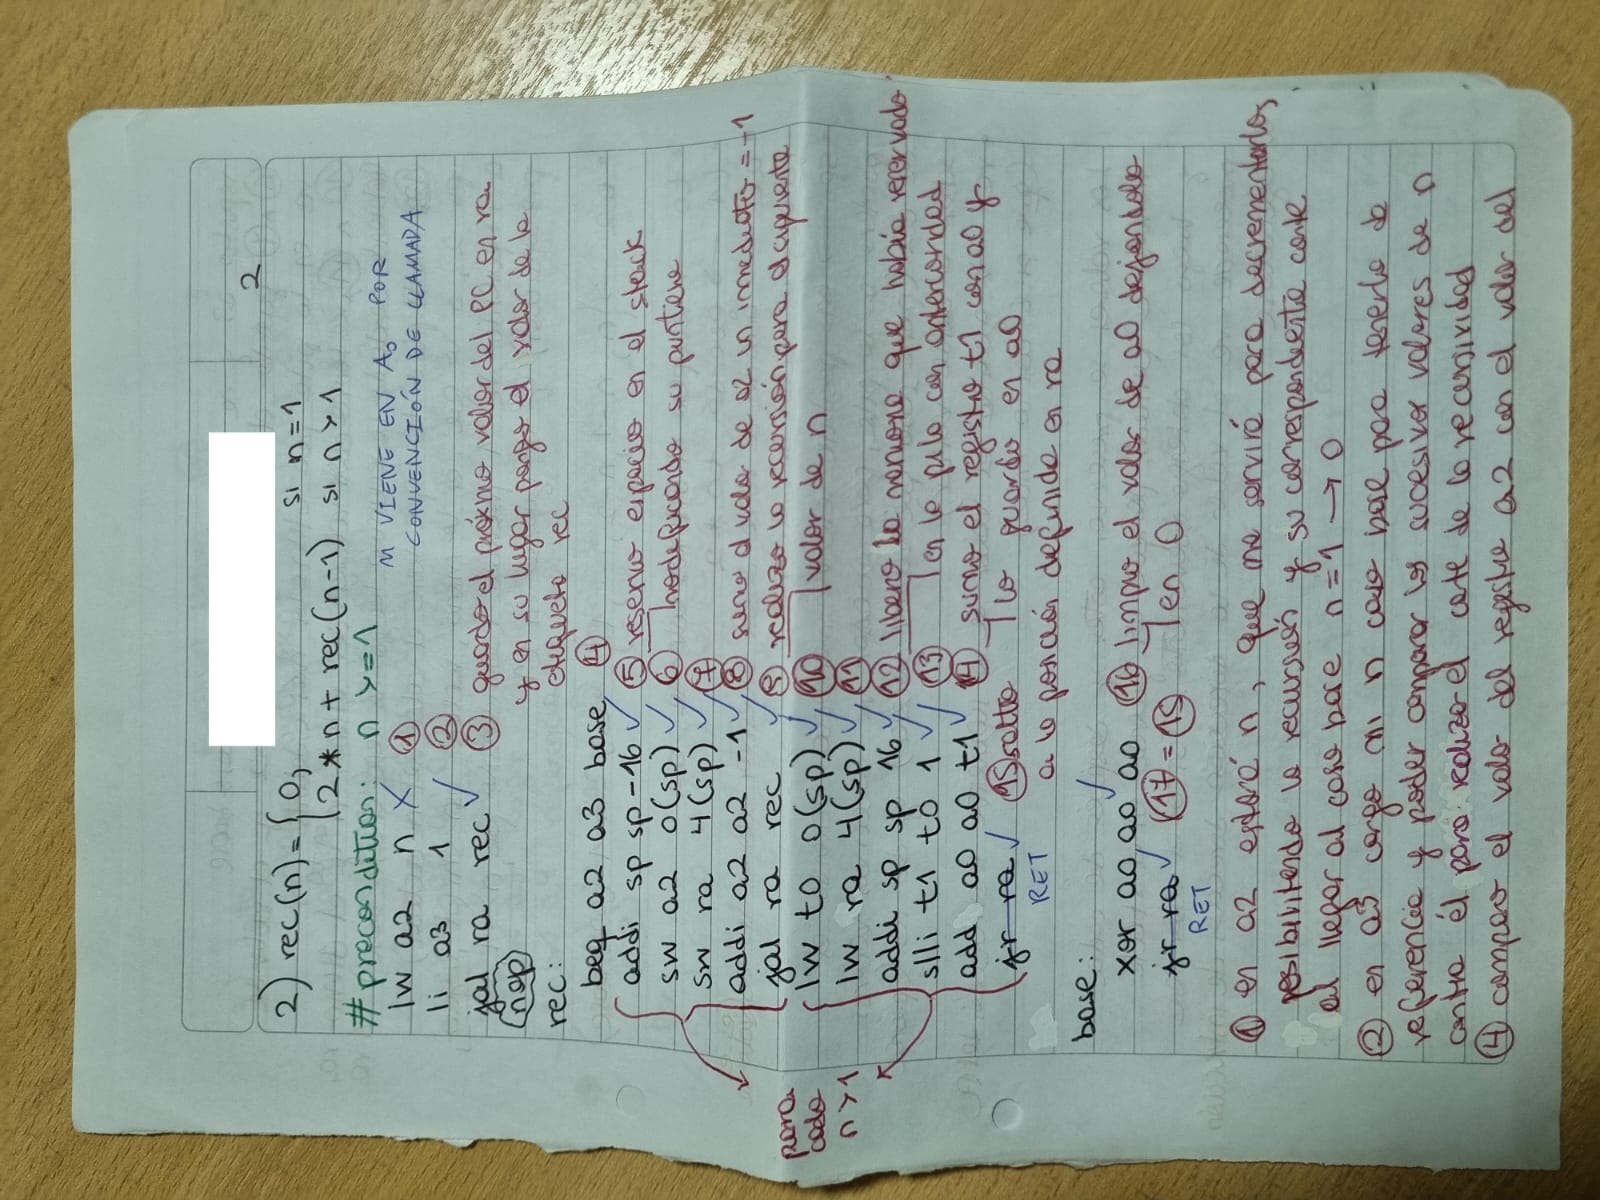 2
2) rec(n)= { 0, si n=1
2*n + rec(n-1) si n>1
#precondition: n >=1
N VIENE EN A0 POR
CONVENCIÓN DE LLAMADA
lw a2 n X ①
li a3 1 ②
jal ra rec ✓ ③ guardo el próximo valor del PC en ra
(nop) y en su lugar pongo el valor de la
rec: etiqueta rec
beq a2 a3 base ④
addi sp sp -16 ✓ ⑤ reservo espacio en el stack
sw a2 0(sp) ✓ ⑥ modificando su puntero
sw ra 4(sp) ✓ ⑦
addi a2 a2 -1 ✓ ⑧ sumo al valor de a2 un inmediato = -1
jal ra rec ✓ ⑨ realizo la recursión para el siguiente
lw t0 0(sp) ✓ ⑩ valor de n
para
cada
n>1
lw ra 4(sp) ✓ ⑪
addi sp sp 16 ✓ ⑫ libero la memoria que había reservado
slli t1 t0 1 ✓ ⑬ en la pila con anterioridad
add a0 a0 t1 ✓ ⑭ sumo el registro t1 con a0 y
jr ra ✓ ⑮ salto lo guardo en a0
RET a la posición definida en ra
base: ✓
xor a0, a0 a0 ⑯ limpio el valor de a0 dejándolo
jr ra ✓ ⑰ = ⑮ en 0
RET
① en a2 estará n, que me servirá para decrementarlo,
posibilitando la recursión y su correspondiente corte
al llegar al caso base n=1 → 0
② en a3 cargo mi n caso base para tenerlo de
referencia y poder comparar los sucesivos valores de n
contra él para realizar el corte de la recursividad
④ comparo el valor del registro a2 con el valor del